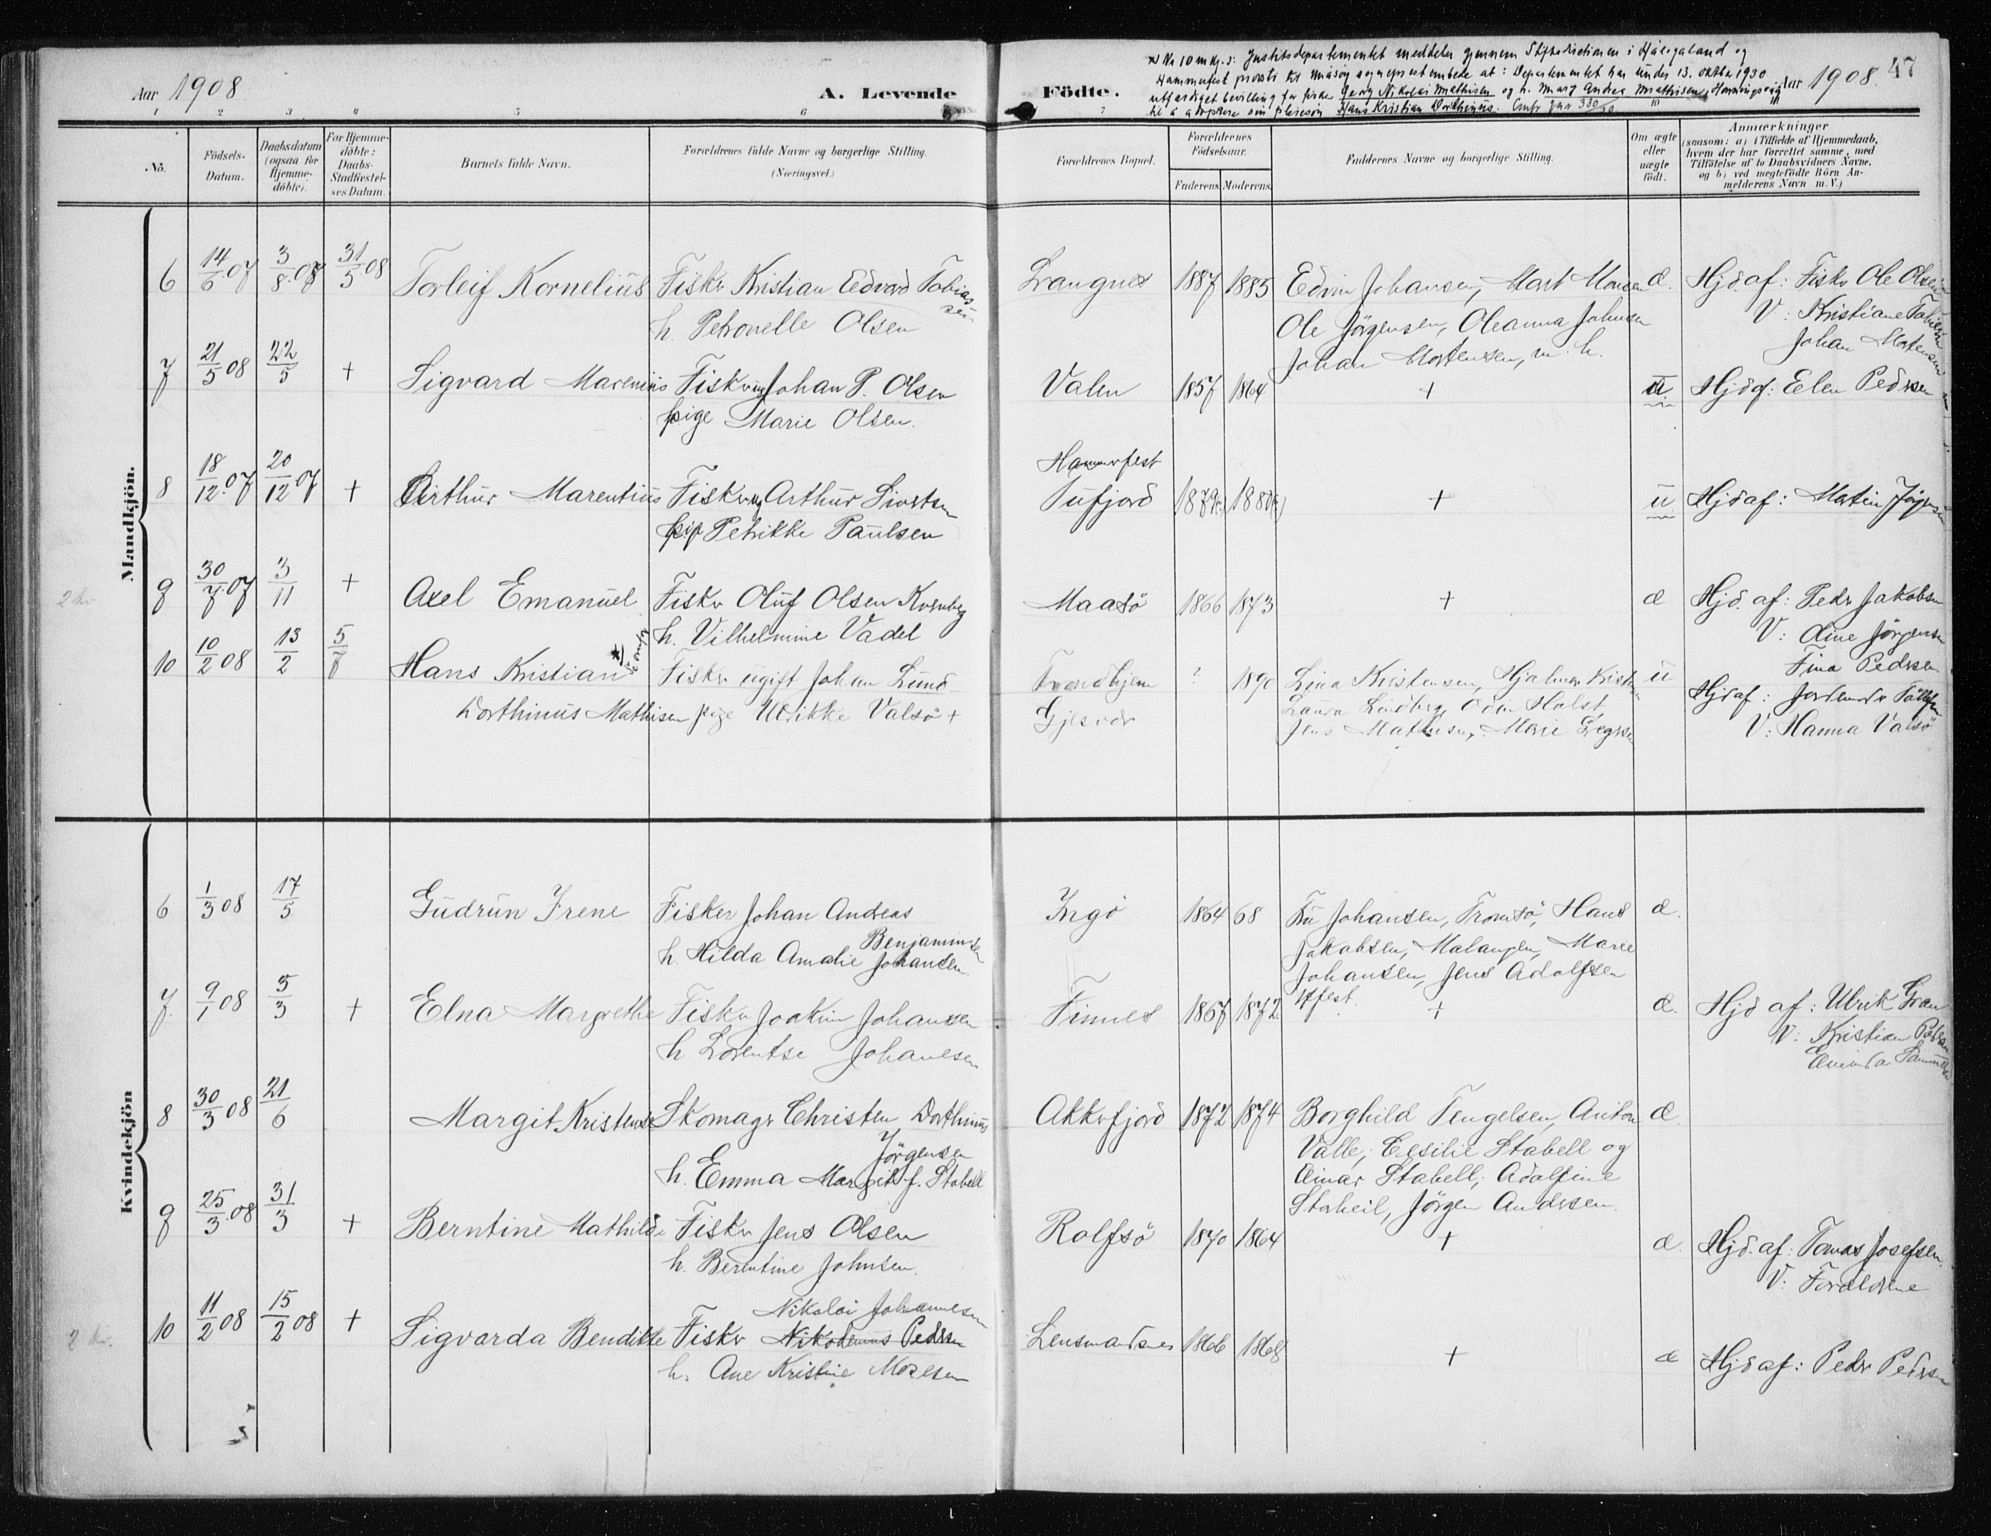 Aar 1908
A. Levende
Födte.
Nr 10 mkj.: Justitsdepartementet meddeler gjennem Stiftsdirektionen i Hålogaland og
Hammerfest prosti til Måsøy sogneprestembede at: Departementet har under 13. oktbr 1930
utferdiget bevilling for fisker Georg Nikolai Mathisen og h. Mary Andrea Mathisen, Honningsvåg
til å adoptere sin pleiesøn Hans Kristian Dorthinus. Cmfr jnr 330/30
Aar 1908.
47
1 2 3 4 5 6 7 10
No.
Födsels-
Datum.
Daabsdatum
(ogsaa for
Hjemme-
döbte).
For Hjemme-
döbte:
Daabs-
Stadfestel-
ses Datum.
Barnets fulde Navn.
Forældrenes fulde Navne og borgerlige Stilling.
(Næringsvei.)
Forældrenes Bopæl.
Forældrenes
Födselsaar.
Faderens. Moderens.
Faddernes Navne og borgerlige Stilling.
Om ægte
eller
uægte
födt.
Anmærkninger
(saasom: a) i Tilfælde af Hjemmedaab,
hvem der har forrettet samme, med
Tilföielse af to Daabsvidners Navne,
og b) ved uægtefödte Börn An-
melderens Navn m. V.)
Mandkjön.
6 14/6 07 3/8 08 31/5 08 Torleif Kornelius Fisker Kristian Edvard Tobias Langnes 1887 1885 Edvin Johansen, Mart Monsen æ. Hjd af: Fisker Ole Olsen
sen
h. Petronelle Olsen Ole Jørgensen, Oleanna Johnsen V: Kristiane Tobiesen
Johan Mortensen, m. h. Johan Mortensen
7 21/5 08 22/5 + Sigvard Marenius Fisker ug Johan P. Olsen Valen 1857 1864 + u Hjd af: Elen Pedersen
pige Marie Olsen.
Hammerfest
8 18/12 07 20/12 07 + Arthur Marentius Fisker ug Arthur Sivertsen Tufjord 1879 + u Hjd af: Martin Jörgensen
pige Petrikke Paulsen
2 kr
9 30/7 07 3/11 + Axel Emanuel Fisker Oluf Olsen Kvenberg Maasö 1866 1873 + æ Hjd. af: Peder Jakobsen
h. Vilhelmine Vadel V: Line Jørgensen
Fina Pedersen
10 10/2 08 13/2 5/7 Hans Kristian Fisker ugift Johan Lund Trondhjem ? 1890 Lina Kristensen, Hjalmar Kristensen u Hjd af:
Dorthinus Mathisen pige Ulrikke Valsö + Gjesvær Laura Lindberg, Odin Holst, V: Hanna Valsö
Jens Mathisen, Marie
Kvindekjön
6 1/3 08 17/5 Gudrun Irene Fisker Johan Andreas Ingö 1864 68 Johansen, Tromsö, Hans æ.
Benjaminsen
h. Hilda Amalie Johansen. Jakobsen, Malangen, Marie
Johansen, Jens Adolfsen
Hfest.
7. 9/1 08 5/3 + Elna Margrethe Fisker Joakim Johansen Finnes 1867 1872 + æ. Hjd af: Ulrik Gran
h Lorentse Johansen V: Kristian Pedersen
8 30/3 08 21/6 Margit Kristense Skomager Christen Dorthinus Akkerfjord 1872 1874 Borghild Tengelsen, Anton æ.
Jörgensen
h. Emma Margit f. Stabell Valle, Cesilie Stabell og
Einar Stabell, Adolfine
Stabell, Jörgen Andersen.
9 25/3 08 31/3 + Berntine Mathilde Fisker Jens Olsen Rolfsö 1870 1864 + æ. Hjd. af: Tomas Josefsen.
h. Berntine Johnsen. V: Foreldrene
Nikolai Johannesen
2 kr.
10 11/2 08 15/2 08 + Sigvarda Bendikte Fisker Nikodemus Pedersen Lensmandsnes 1866 1868 + æ Hjd af: Peder Pedersen
h. Ane Kristine Nilsen